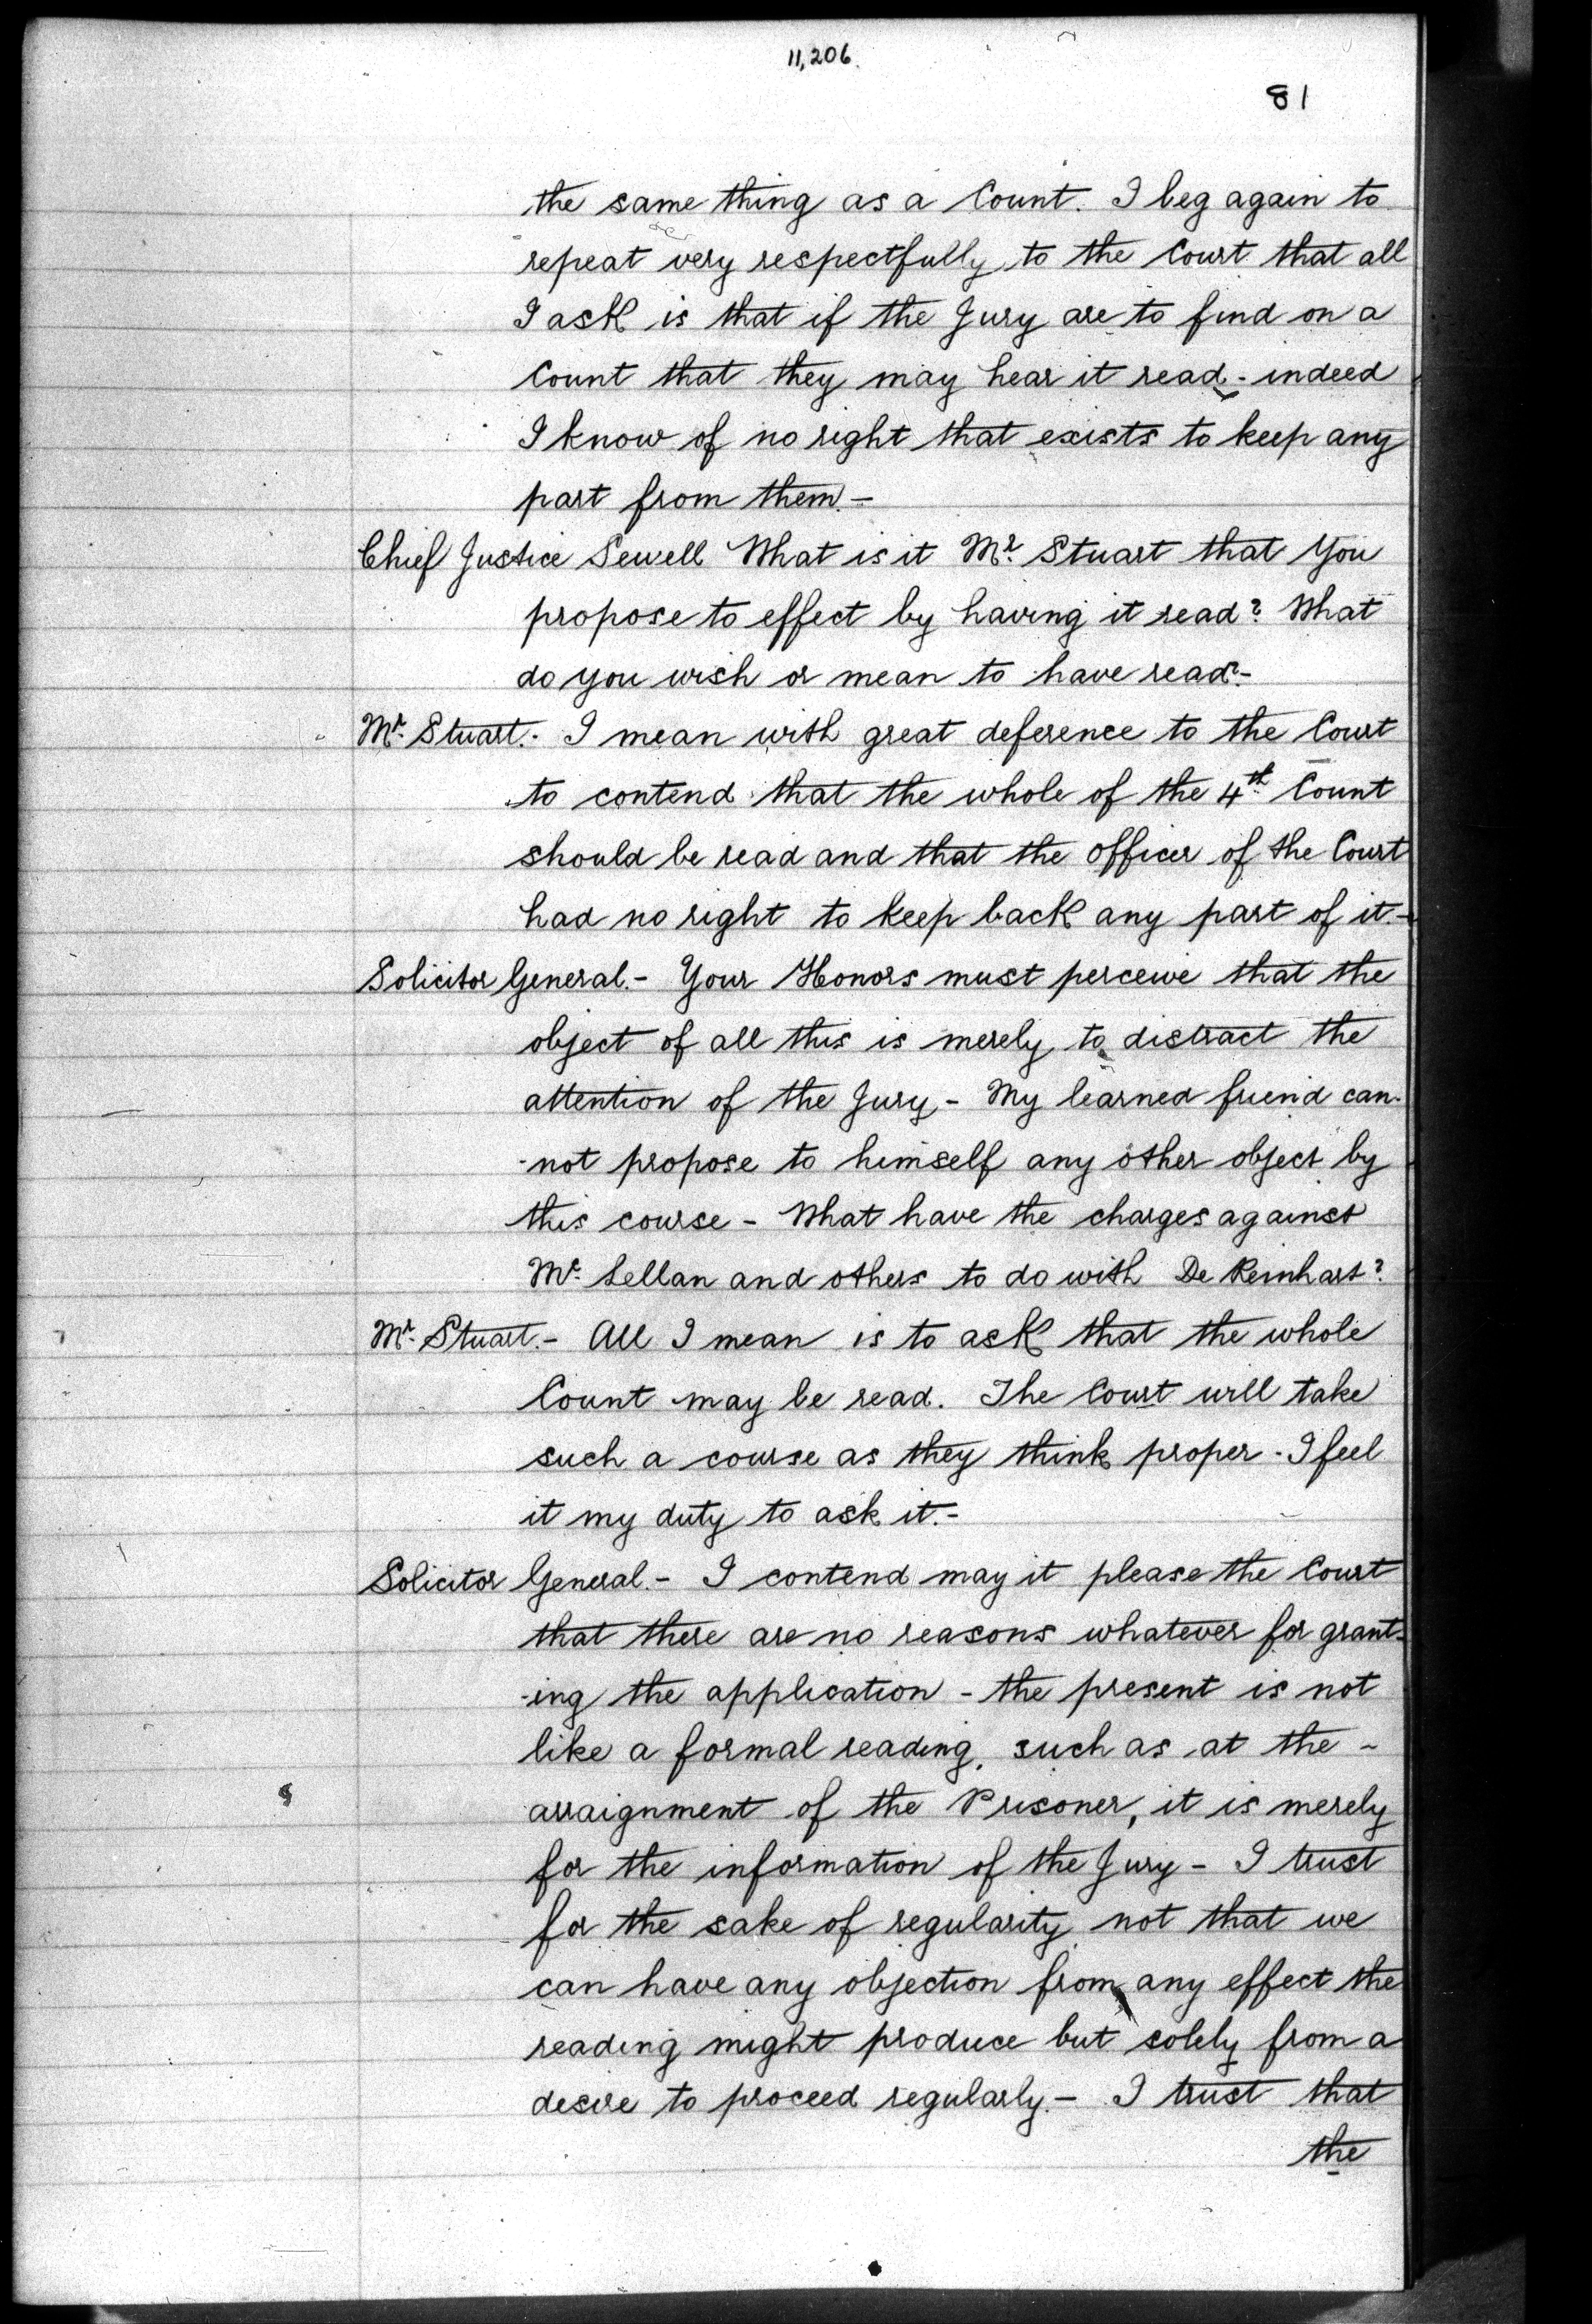 11,206.
81
the same thing as a Count. I beg again to
repeat very respectfully to the Court that all
I ask is that if the Jury are to find on a
Count that they may hear it read - indeed
I know of no right that exists to keep any
part from them. -
Chief Justice Sewell What is it Mr. Stuart that You
propose to effect by having it read? What
do you wish or mean to have read? -
Mr. Stuart. - I mean with great deference to the Court
to contend that the whole of the 4th Count
should be read and that the Officer of the Court
had no right to keep back any part of it. -
Solicitor General. - Your Honors must perceive that the
object of all this is merely to distract the
attention of the Jury - My learned friend can-
-not propose to himself any other object by
this course - What have the charges against
Mc. Lellan and others to do with De Reinhart?
Mr. Stuart. - All I mean is to ask that the whole
Count may be read. The Court will take
such a course as they think proper - I feel
it my duty to ask it. -
Solicitor General. - I contend may it please the Court
that there are no reasons whatever for grant-
-ing the application - the present is not
like a formal reading, such as at the -
arraignment of the Prisoner, it is merely
for the information of the Jury - I trust
for the sake of regularity, not that we
can have any objection from any effect the
reading might produce but solely from a
desire to proceed regularly. - I trust that
the